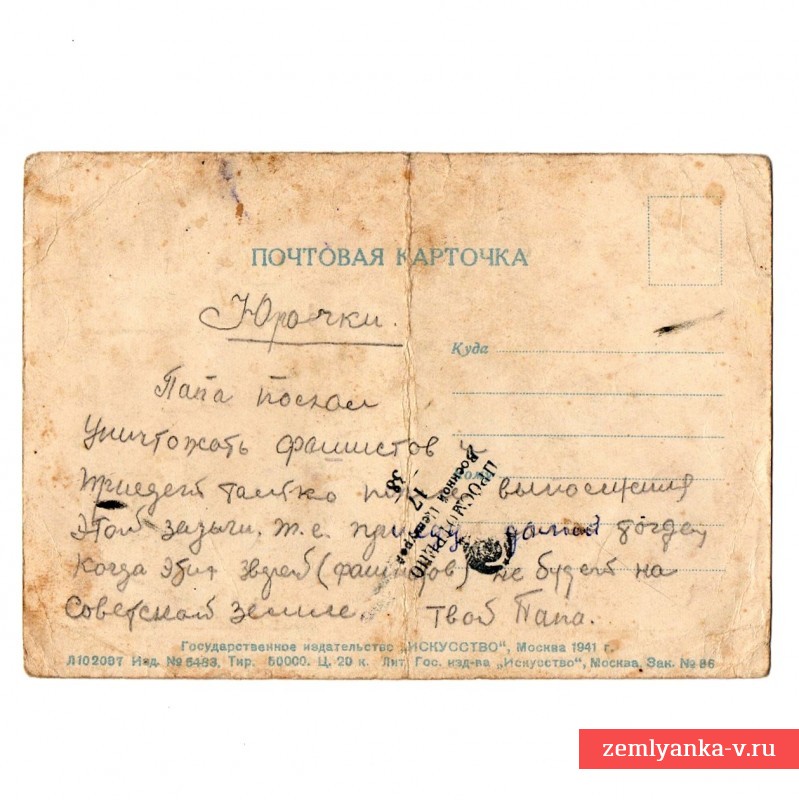 ПОЧТОВАЯ КАРТОЧКА
Юрочки.
Куда
Папа поехал
уничтожать фашистов и
приедет толко после выполнения
этой задачи. т.е. приеду домой тогда
Когда этих зверей (фашистов) не будет на
Советской земле. твой Папа.
ПРОСМОТРЕНО
Военной Цензурой
17
38
Государственное издательство „ИСКУССТВО“, Москва 1941 г.
Л102097 Изд. № 5483. Тир. 50000. Ц. 20 к. Лит. Гос. изд-ва „Искусство“, Москва. Зак. № 86
zemlyanka-v.ru